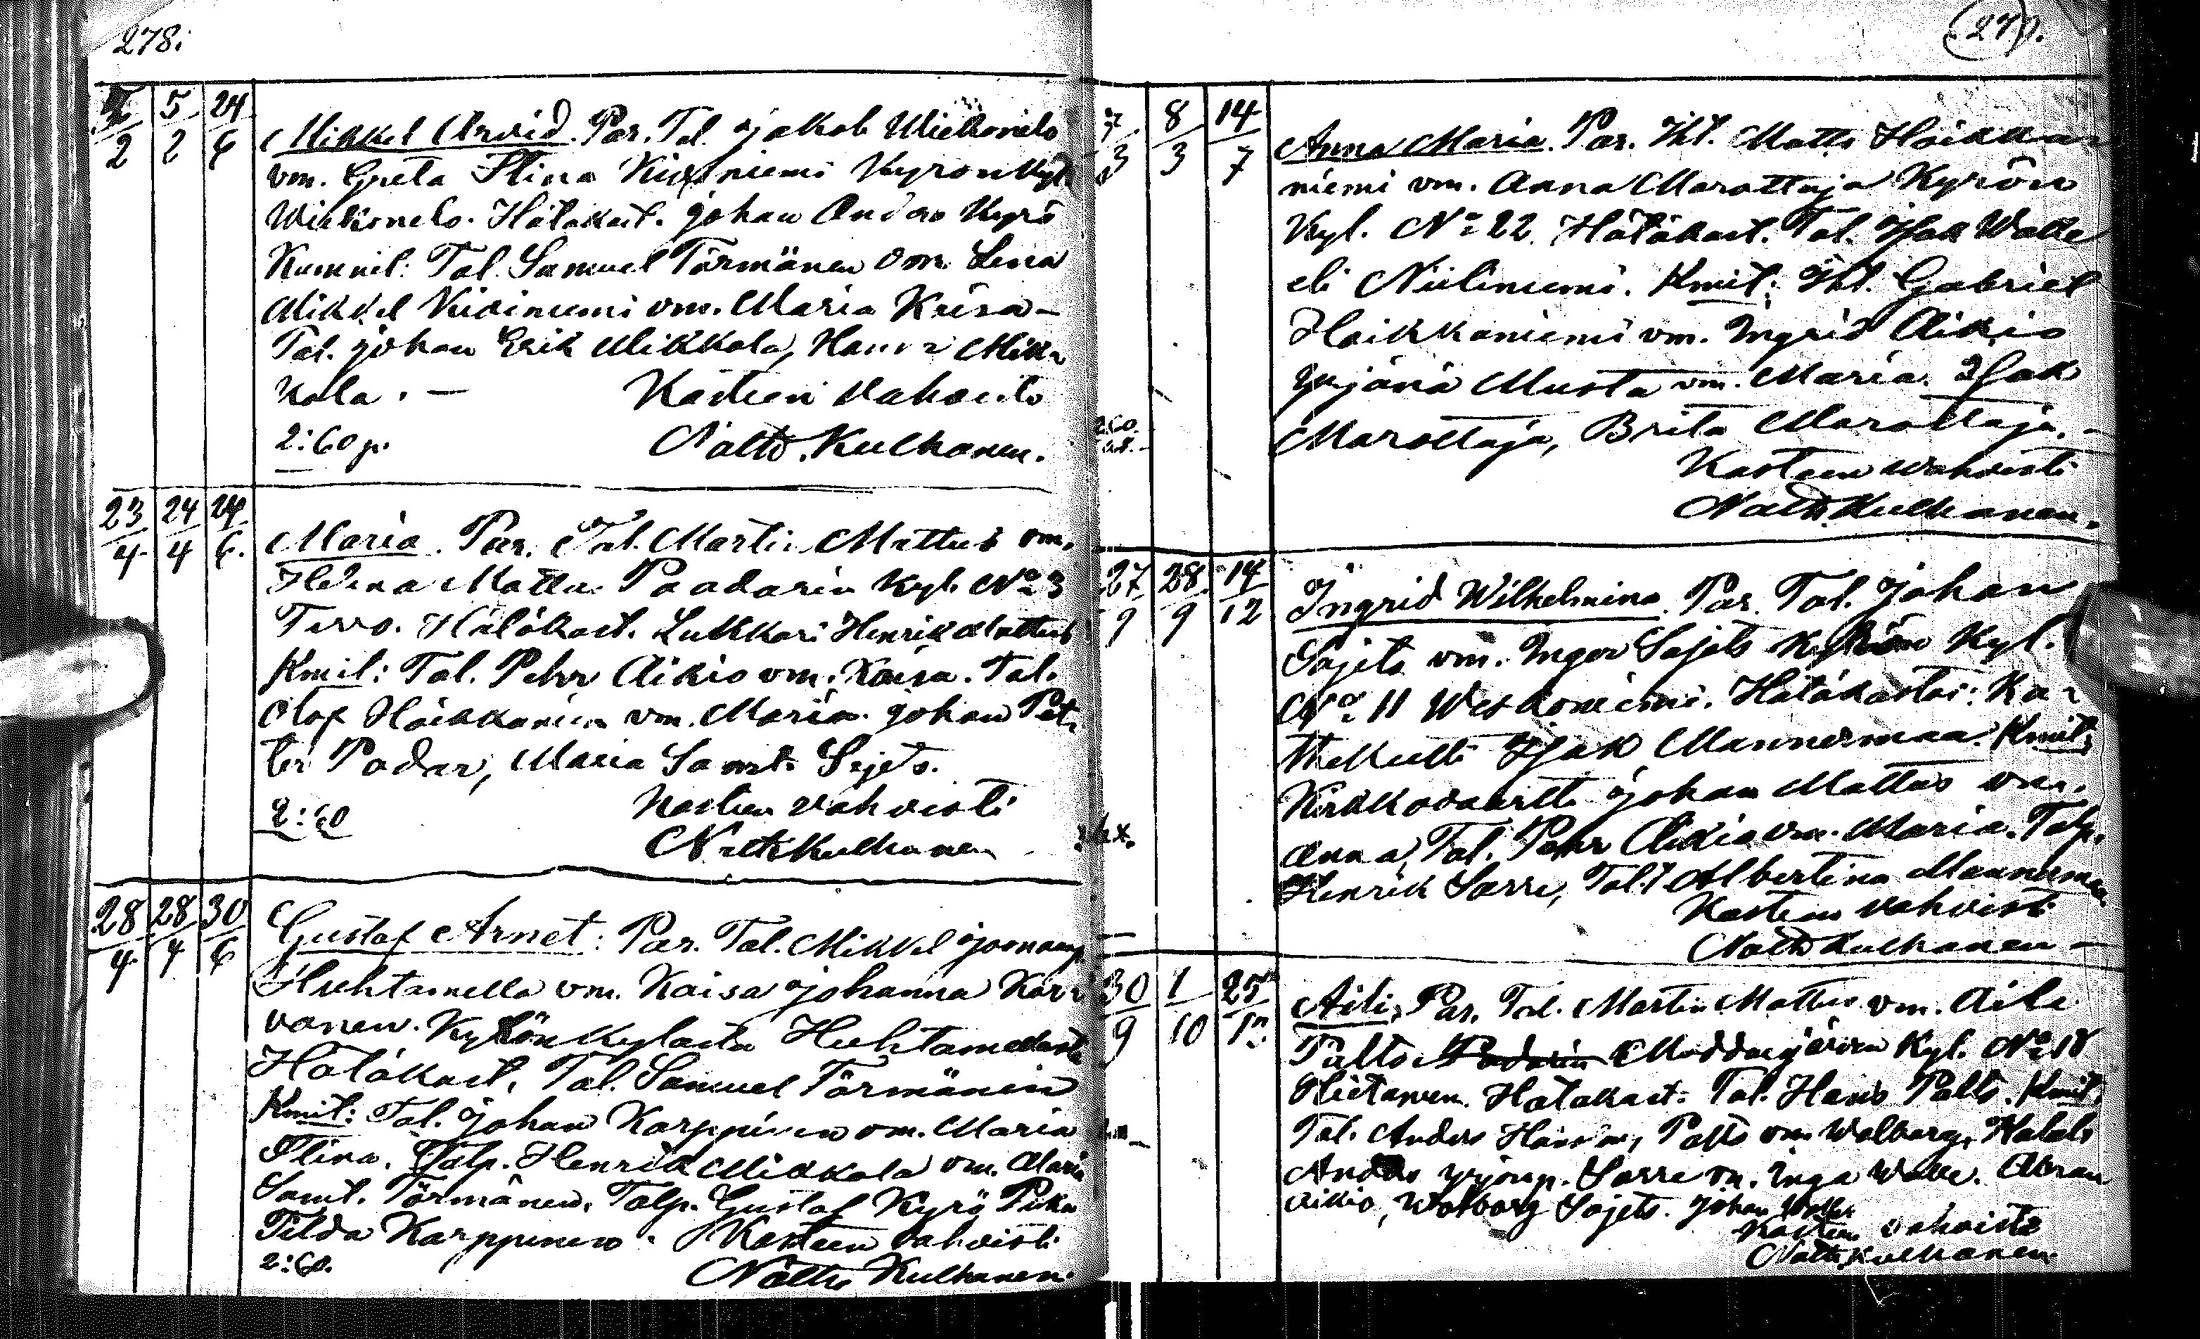 278.
5 24
2 2 6
Mikkel Arvid. Par. Tal. Jakob Wiekonelo
vm. Greta Stina Kiviniemi Kyrön kyl.
Wiekonelo. Hätäkast. Johan Anders Kyrö
Kummit: Tal. Samuel Törmänen vm. Lena
Mikkel Kiviniemi vm. Maria Keisa-
Tal. Johan Erik Mikkola, Mik-
kola. —
Kasteen vahvisti
2:60 p.
Natti Kulhanen.
23 24 24
4 4 6.
Maria. Par. Tal. Martin Mattus vm.
Helena Mattus Paadarin kyl. No 3
Tervo. Hätäkast. Lukkari Henrik Mattus
Kmit: Tal. Pehr Aikio vm. Kaisa. Tal.
Olof Haikkaniemi vm. Maria. Johan Pet-
ter Padar, Maria Saml. Sajets.
2:60
Kasteen vahvisti
Natti Kulhanen
28 28 30
4 4 6
Gustaf Arnet: Par. Tal. Mikkel
Huhtamella vm. Kaisa Johanna Kar-
vonen. Kyrön kylästä
Hätäkast. Tal. Samuel Törmänen
Kmit: Tal. Johan Karppinen vm. Maria
Stina. Talp. Henrik Mikkola vm. Maria
Saml. Törmänen. Talp. Gustaf Kyrö Pika
Tilda Karppinen. Kasteen vahvisti
2:60.
Natti Kulhanen.
7 8 14
3 3 7
Anna Maria. Par. Itl. Matts Haikka-
niemi vm. Anna Marottaja Kyrön
Kyl. No 22. Hätäkast. Tal. Isak Walle
eli Niiliniemi. Kmit: Itl. Gabriel
Haikkaniemi vm. Ingrid Aikio
Yrjänä Musta vm. Maria. Isak
Marottaja, Brita Marottaja. —
2:60
Kasteen vahvisti
Natti Kulhanen.
27 28 14
9 9 12
Ingrid Wilhelmina. Par. Tal. Johan
Sajets vm. Inger Sajets Kyrön Kyl.
No 11 Weskoniemi. Hätäkastoi: Ka-
tekeetti Isak Mannermaa. Kmit;
Kirkkovaartti Johan Mattus vm.
Anna, Tal. Pehr Aikio vm. Maria. Talp.
Henrik Sarre, Tal:t Albertina Mannerma
Kasteen vahvisti
Natti Kulhanen —
30 1 25
9 10
Aili, Par. Tal. Martin Mattus vm. Aili
Palto Muddusjärven Kyl. No 18
Hietanen. Hätäkast. Tal. Hans Palto. Kmit;
Tal. Anders Palto vm. Walborg,
Anders Yrjönp. Sarre vm. Inga Walle. Abram
Aikio, Walborg Sajets. Johan Walle
Kasteen vahvisti
Natti Kulhanen.